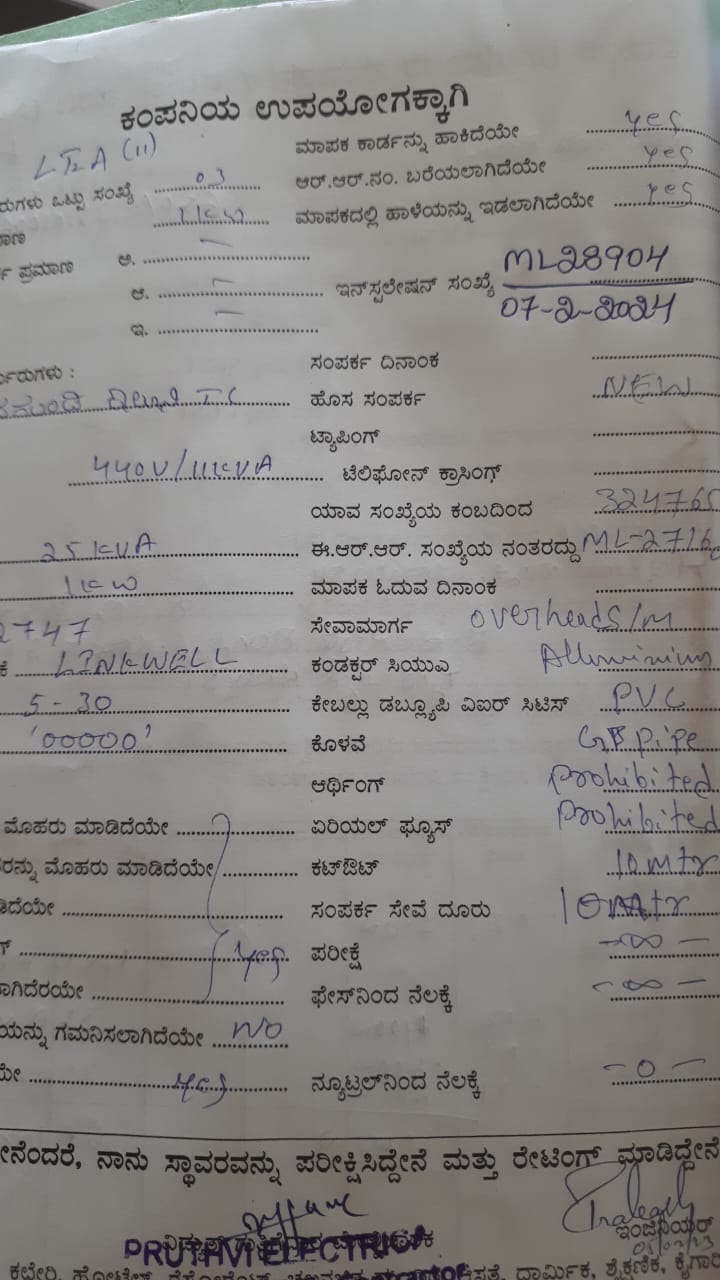 ಕಂಪನಿಯ ಉಪಯೋಗಕ್ಕಾಗಿ
LT2A (11) ಮಾಪಕ ಕಾರ್ಡನ್ನು ಹಾಕಿದೆಯೇ yes
ರುಗಳು ಒಟ್ಟು ಸಂಖ್ಯೆ 03 ಆರ್.ಆರ್.ನಂ. ಬರೆಯಲಾಗಿದೆಯೇ yes
ಮಾಣ 1KW ಮಾಪಕದಲ್ಲಿ ಹಾಳೆಯನ್ನು ಇಡಲಾಗಿದೆಯೇ yes
ಪ್ರಮಾಣ ಅ. –
ಆ. – ಇನ್‌ಸ್ಪಲೇಷನ್ ಸಂಖ್ಯೆ ML28904
07-2-2024
ಇ. –
ರುಗಳು : ಸಂಪರ್ಕ ದಿನಾಂಕ
TC ಹೊಸ ಸಂಪರ್ಕ NEW
ಟ್ಯಾಪಿಂಗ್
440V/11KVA ಟೆಲಿಫೋನ್ ಕ್ರಾಸಿಂಗ್
ಯಾವ ಸಂಖ್ಯೆಯ ಕಂಬದಿಂದ 324765
25 KVA ಈ.ಆರ್.ಆರ್. ಸಂಖ್ಯೆಯ ನಂತರದ್ದು ML-2716
1KW ಮಾಪಕ ಓದುವ ದಿನಾಂಕ
2747 ಸೇವಾಮಾರ್ಗ overheads/m
ಕೆ LINKWELL ಕಂಡಕ್ಟರ್ ಸಿಯುಎ Alluminium
5-30 ಕೇಬಲ್ಲು ಡಬ್ಲ್ಯೂಪಿ ವಿಐರ್ ಸಿಟಿಸ್ PVC
'00000' ಕೊಳವೆ GI pipe
ಆರ್ಥಿಂಗ್ Prohibited
ಮೊಹರು ಮಾಡಿದೆಯೇ ಏರಿಯಲ್ ಫ್ಯೂಸ್ Prohibited
ರನ್ನು ಮೊಹರು ಮಾಡಿದೆಯೇ ಕಟ್‌ಔಟ್ 10 mtr
ಡಿದೆಯೇ ಸಂಪರ್ಕ ಸೇವೆ ದೂರು 10 mtr
ಗ್ yes ಪರೀಕ್ಷೆ -∞-
ಾಗಿದೆರಯೇ ಫೇಸ್‌ನಿಂದ ನೆಲಕ್ಕೆ -∞-
ಯನ್ನು ಗಮನಿಸಲಾಗಿದೆಯೇ NO
ಯೇ yes ನ್ಯೂಟ್ರಲ್‌ನಿಂದ ನೆಲಕ್ಕೆ -0-
ನೇನೆಂದರೆ, ನಾನು ಸ್ಥಾವರವನ್ನು ಪರೀಕ್ಷಿಸಿದ್ದೇನೆ ಮತ್ತು ರೇಟಿಂಗ್ ಮಾಡಿದ್ದೇನೆ
ಇಂಜಿನಿಯರ್
PRUTHVI ELECTRICA
ಧಾರ್ಮಿಕ, ಶೈಕ್ಷಣಿಕ, ಕೈಗಾರಿ